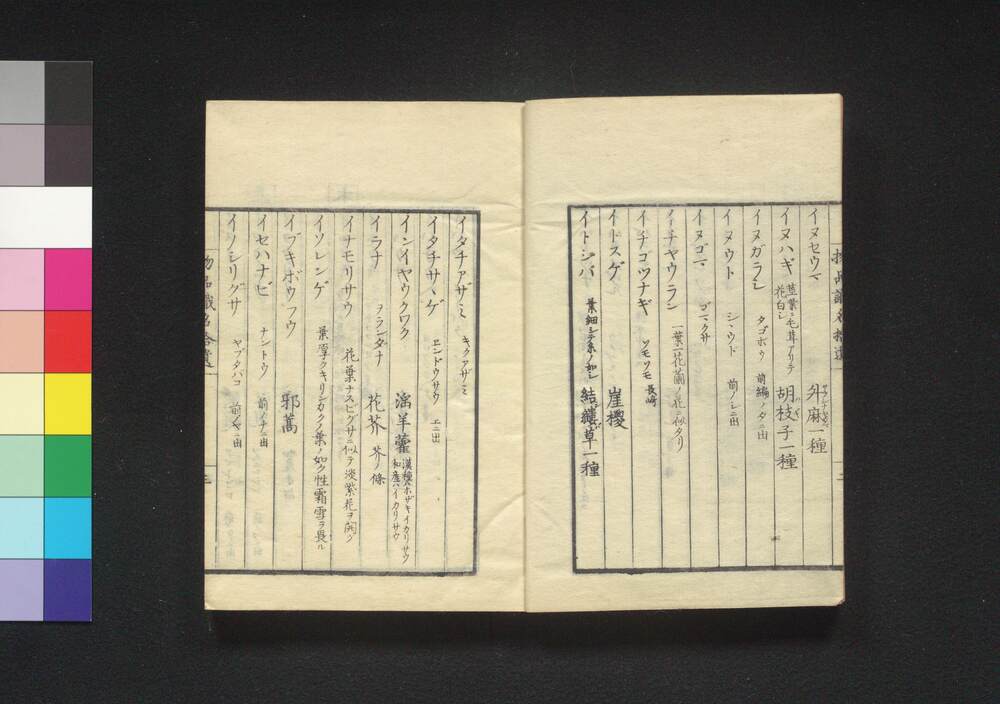 イヌセウマ 升麻一種
イヌハギ 茎葉ニ毛茸アリテ花白シ 胡枝子一種
イヌガラシ タゴボウ 前編ノタニ出
イヌウト シヽウト 前ノシニ出
イヌゴマ ゴマクサ
イチヤウラン 一葉一花蘭ノ花ニ似タリ
イチゴツナギ ソモソモ 長崎
イトスゲ 崖椶
イトシバ 葉細シテ糸ノ如シ 結縷草一種
イタチアザミ キクアザミ
イタチサヽゲ エンドウサウ エニ出
インイヤウクワク 淫羊藿 漢種ホザキイカリサウ 和産ハイカリサウ
イラナ ヲランダナ 花芥 芥ノ條
イナモリサウ 花葉ナスビグサニ似テ淡紫花ヲ開ク
イソレンゲ 葉厚クキリンカクノ葉ノ如ク性霜雪ヲ畏ル
イブキボウフウ 邪蒿
イセハナビ ナントウ 前ノナニ出
イノシリグサ ヤブタバコ 前ノヤニ出
物品識名拾遺